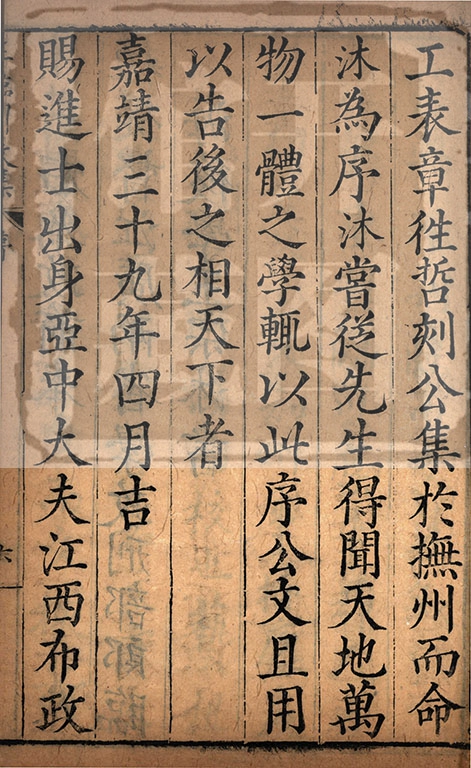 工表章徃哲刻公集於撫州而命
沐為序沐嘗從先生得聞天地萬
物一體之學輒以此序公文且用
以告後之相天下者
嘉靖三十九年四月吉
賜進士出身亞中大夫江西布政